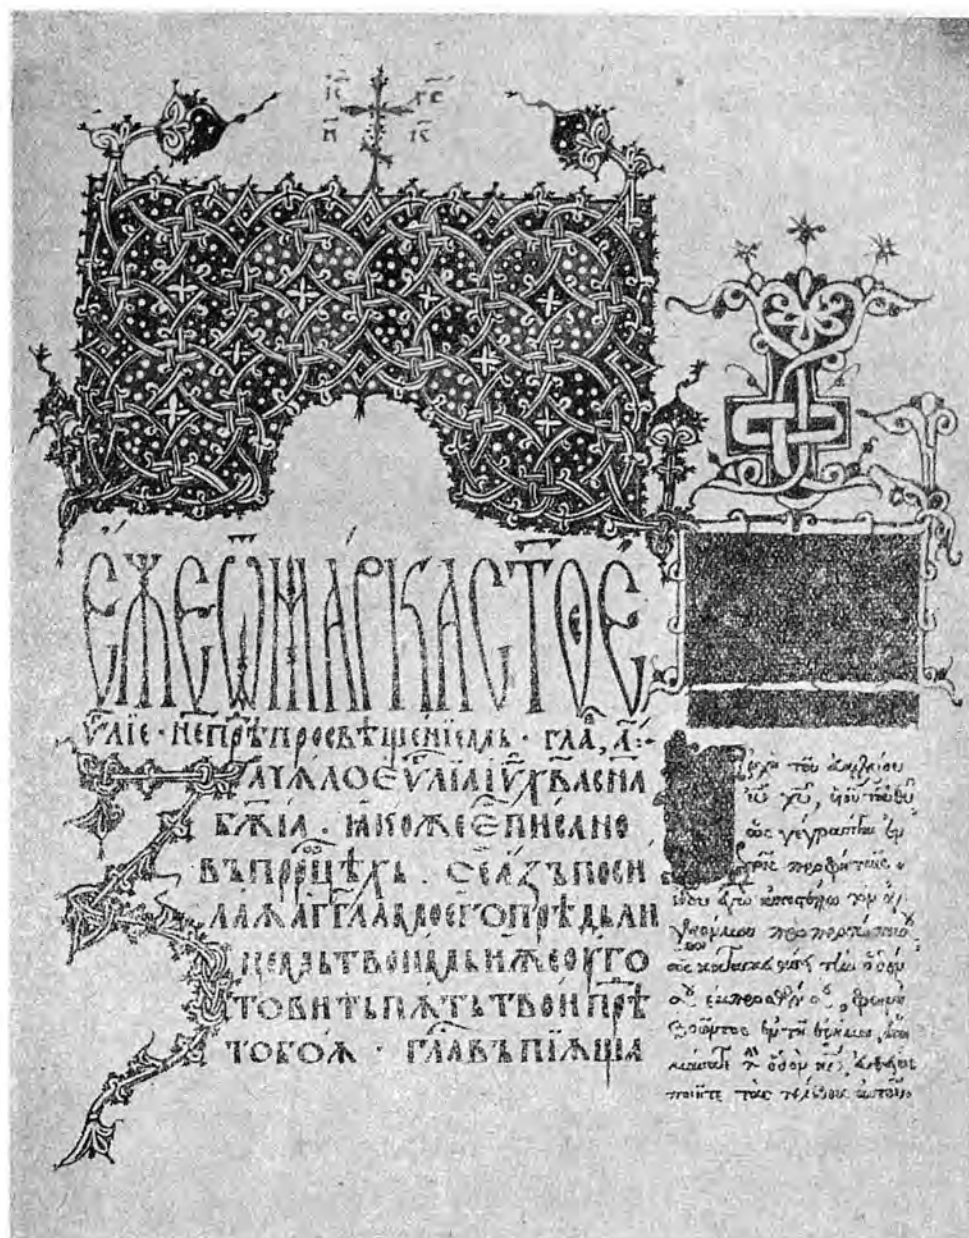 ІС ХС
ЕЖЕ Ѿ МАРКА СТОЕ
ѴЛІЕ · НЕ ПРѢ ПРОСВѢЩЕНІЕМЬ · ГЛА, А҃:·
ЗАЧѦЛО ЕѴЛІА ІУ ХВА СНА
БЖІА · ꙖКОЖЕ Е ПИСАНО
ВЪ ПРРОЦѢХЬ . СЕ АЗЪ ПОСИ
ЛАѪ АГГЛА МОЕГО ПРѢДЬ ЛИ
ЦЕМЬ ТВОИМЬ ИЖЕ ОУГО
ТОВИТЬ ПѪТЬ ТВОИ ПРѢ
ТОБОѪ · ГЛА ВЪПІѪЩІА
Ἀρχὴ τοῦ εὐαγγελίου
ἰυ χυ, υἱοῦ τοῦ θυ
ὡς γέγραπται ἐν
τοῖς προφήταις ·
ἰδοὺ ἐγὼ ἀποστέλλω τὸν ἄγ
γελόν μου πρὸ προσώπου
σου κατασκευάσει τὴν ὁδόν
σου ἔμπροσθέν σου, φωνὴ
βοῶντος ἐν τῇ ἐρήμῳ, ἑτοι
μάσατε τὴν ὁδὸν κυ, εὐθείας
ποιεῖτε τὰς τρίβους αὐτοῦ